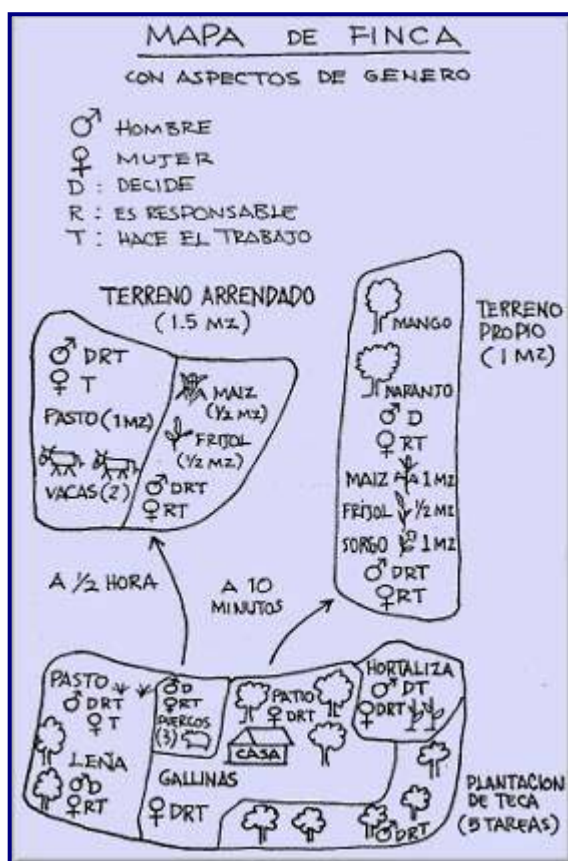 MAPA DE FINCA
CON ASPECTOS DE GENERO
♂ HOMBRE
♀ MUJER
D : DECIDE
R : ES RESPONSABLE
T : HACE EL TRABAJO
TERRENO ARRENDADO
(1.5 MZ)
♂ DRT
♀ T
PASTO (1MZ)
VACAS (2)
MAIZ
(1/2 MZ)
FRIJOL
(1/2 MZ)
♂ DRT
♀ RT
TERRENO
PROPIO
(1 MZ)
MANGO
NARANJO
♂ D
♀ RT
MAIZ 1 MZ
FRÍJOL 1/2 MZ
SORGO 1 MZ
♂ DRT
♀ RT
A 1/2 HORA
A 10
MINUTOS
PASTO
♂ DRT
♀ T
LEÑA
♂ D
♀ RT
♂ D
♀ RT
PUERCOS
(3)
GALLINAS
♀ DRT
PATIO
♀ DRT
CASA
HORTALIZA
♂ DT
♀ DRT
♂ DRT
PLANTACION
DE TECA
(5 TAREAS)